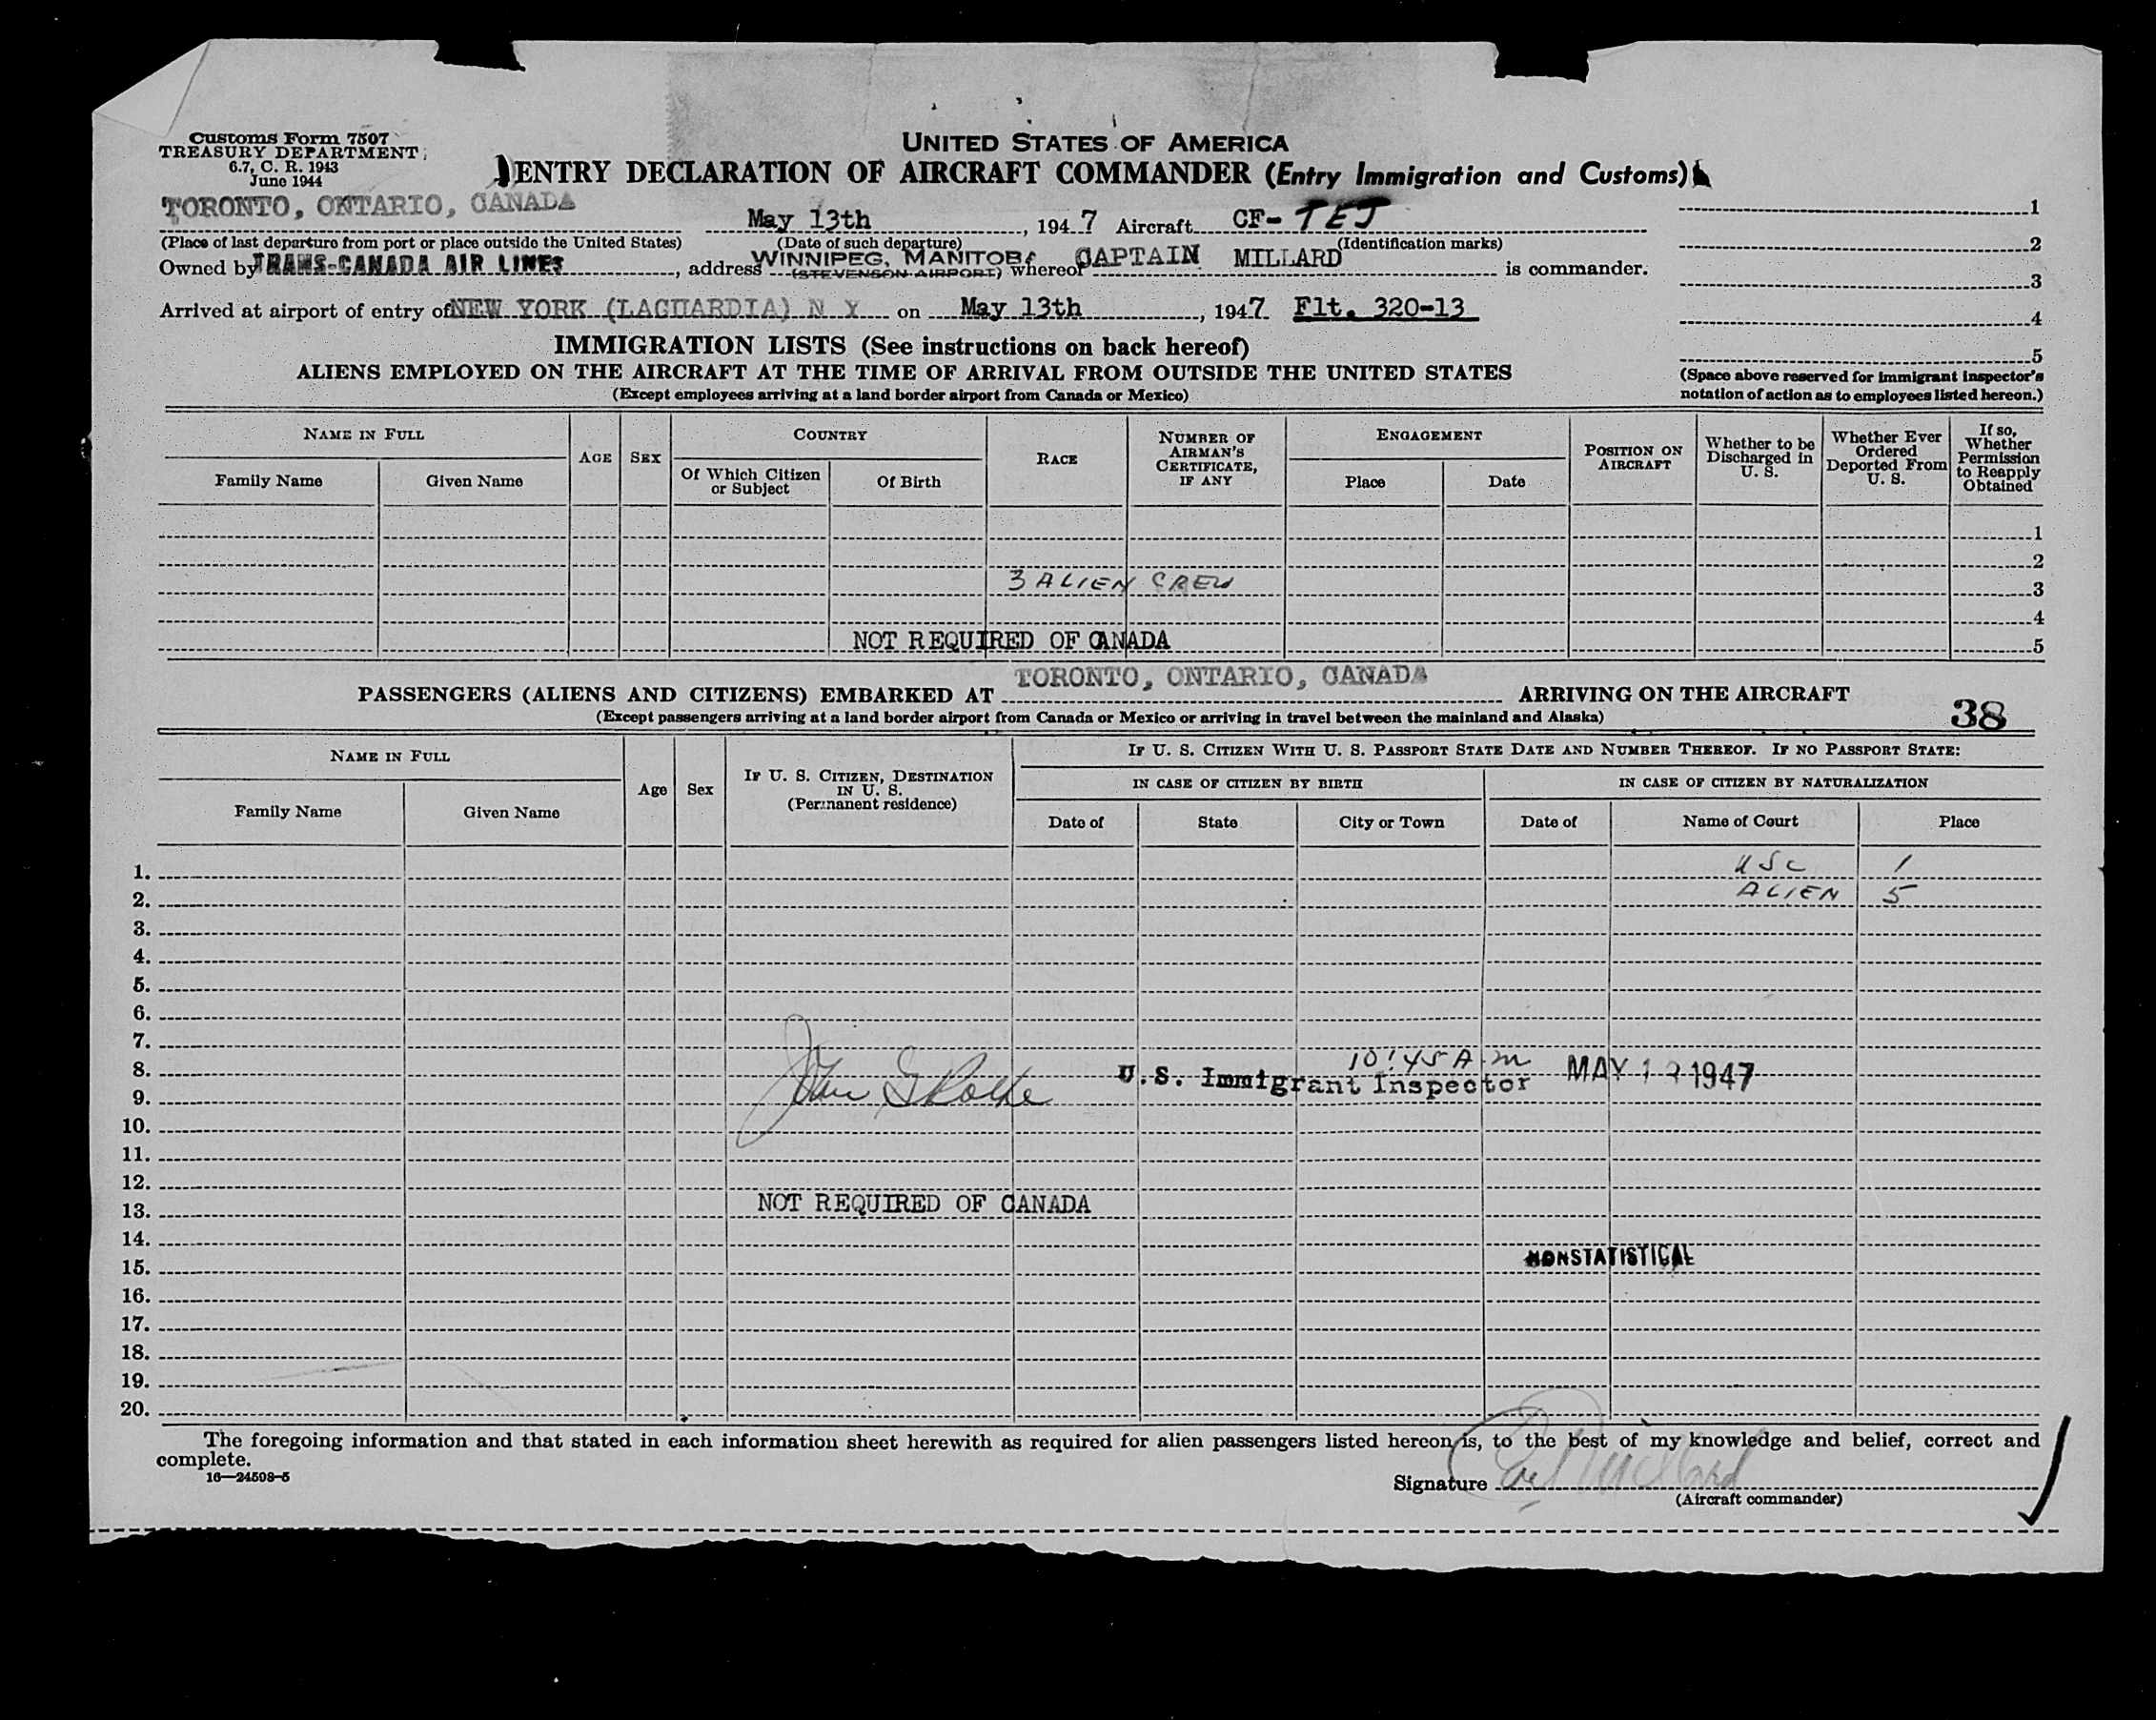 Customs Form 7507
TREASURY DEPARTMENT
6.7, C. R. 1943
June 1944
UNITED STATES OF AMERICA
ENTRY DECLARATION OF AIRCRAFT COMMANDER (Entry Immigration and Customs)
TORONTO, ONTARIO, CANADA May 13th, 1947 Aircraft CF-TEJ
(Place of last departure from port or place outside the United States) (Date of such departure) (Identification marks)
WINNIPEG, MANITOBA
Owned by TRANS-CANADA AIR LINES, address (STEVENSON AIRPORT) whereof CAPTAIN MILLARD is commander.
Arrived at airport of entry of NEW YORK (LAGUARDIA) N Y on May 13th, 1947 Flt. 320-13
1
2
3
4
5
(Space above reserved for immigrant inspector's notation of action as to employees listed hereon.)
IMMIGRATION LISTS (See instructions on back hereof)
ALIENS EMPLOYED ON THE AIRCRAFT AT THE TIME OF ARRIVAL FROM OUTSIDE THE UNITED STATES
(Except employees arriving at a land border airport from Canada or Mexico)
NAME IN FULL
Family Name
Given Name
AGE
SEX
COUNTRY
Of Which Citizen or Subject
Of Birth
RACE
NUMBER OF AIRMAN'S CERTIFICATE, IF ANY
ENGAGEMENT
Place
Date
POSITION ON AIRCRAFT
Whether to be Discharged in U. S.
Whether Ever Ordered Deported From U. S.
If so, Whether Permission to Reapply Obtained
1
2
3 ALIEN CREW 3
4
NOT REQUIRED OF CANADA 5
TORONTO, ONTARIO, CANADA
PASSENGERS (ALIENS AND CITIZENS) EMBARKED AT ARRIVING ON THE AIRCRAFT
(Except passengers arriving at a land border airport from Canada or Mexico or arriving in travel between the mainland and Alaska)
38
NAME IN FULL
Family Name
Given Name
Age
Sex
IF U. S. CITIZEN, DESTINATION IN U. S.
(Permanent residence)
IF U. S. CITIZEN WITH U. S. PASSPORT STATE DATE AND NUMBER THEREOF. IF NO PASSPORT STATE:
IN CASE OF CITIZEN BY BIRTH
IN CASE OF CITIZEN BY NATURALIZATION
Date of
State
City or Town
Date of
Name of Court
Place
1. USC 1
2. ALIEN 5
3.
4.
5.
6.
7.
8. 10:45 A m
9. U.S. Immigrant Inspector MAY 1 1947
10.
11.
12.
13. NOT REQUIRED OF CANADA
14.
15. NONSTATISTICAL
16.
17.
18.
19.
20.
The foregoing information and that stated in each information sheet herewith as required for alien passengers listed hereon is, to the best of my knowledge and belief, correct and
complete.
16—24598-5
Signature Millard
(Aircraft commander)